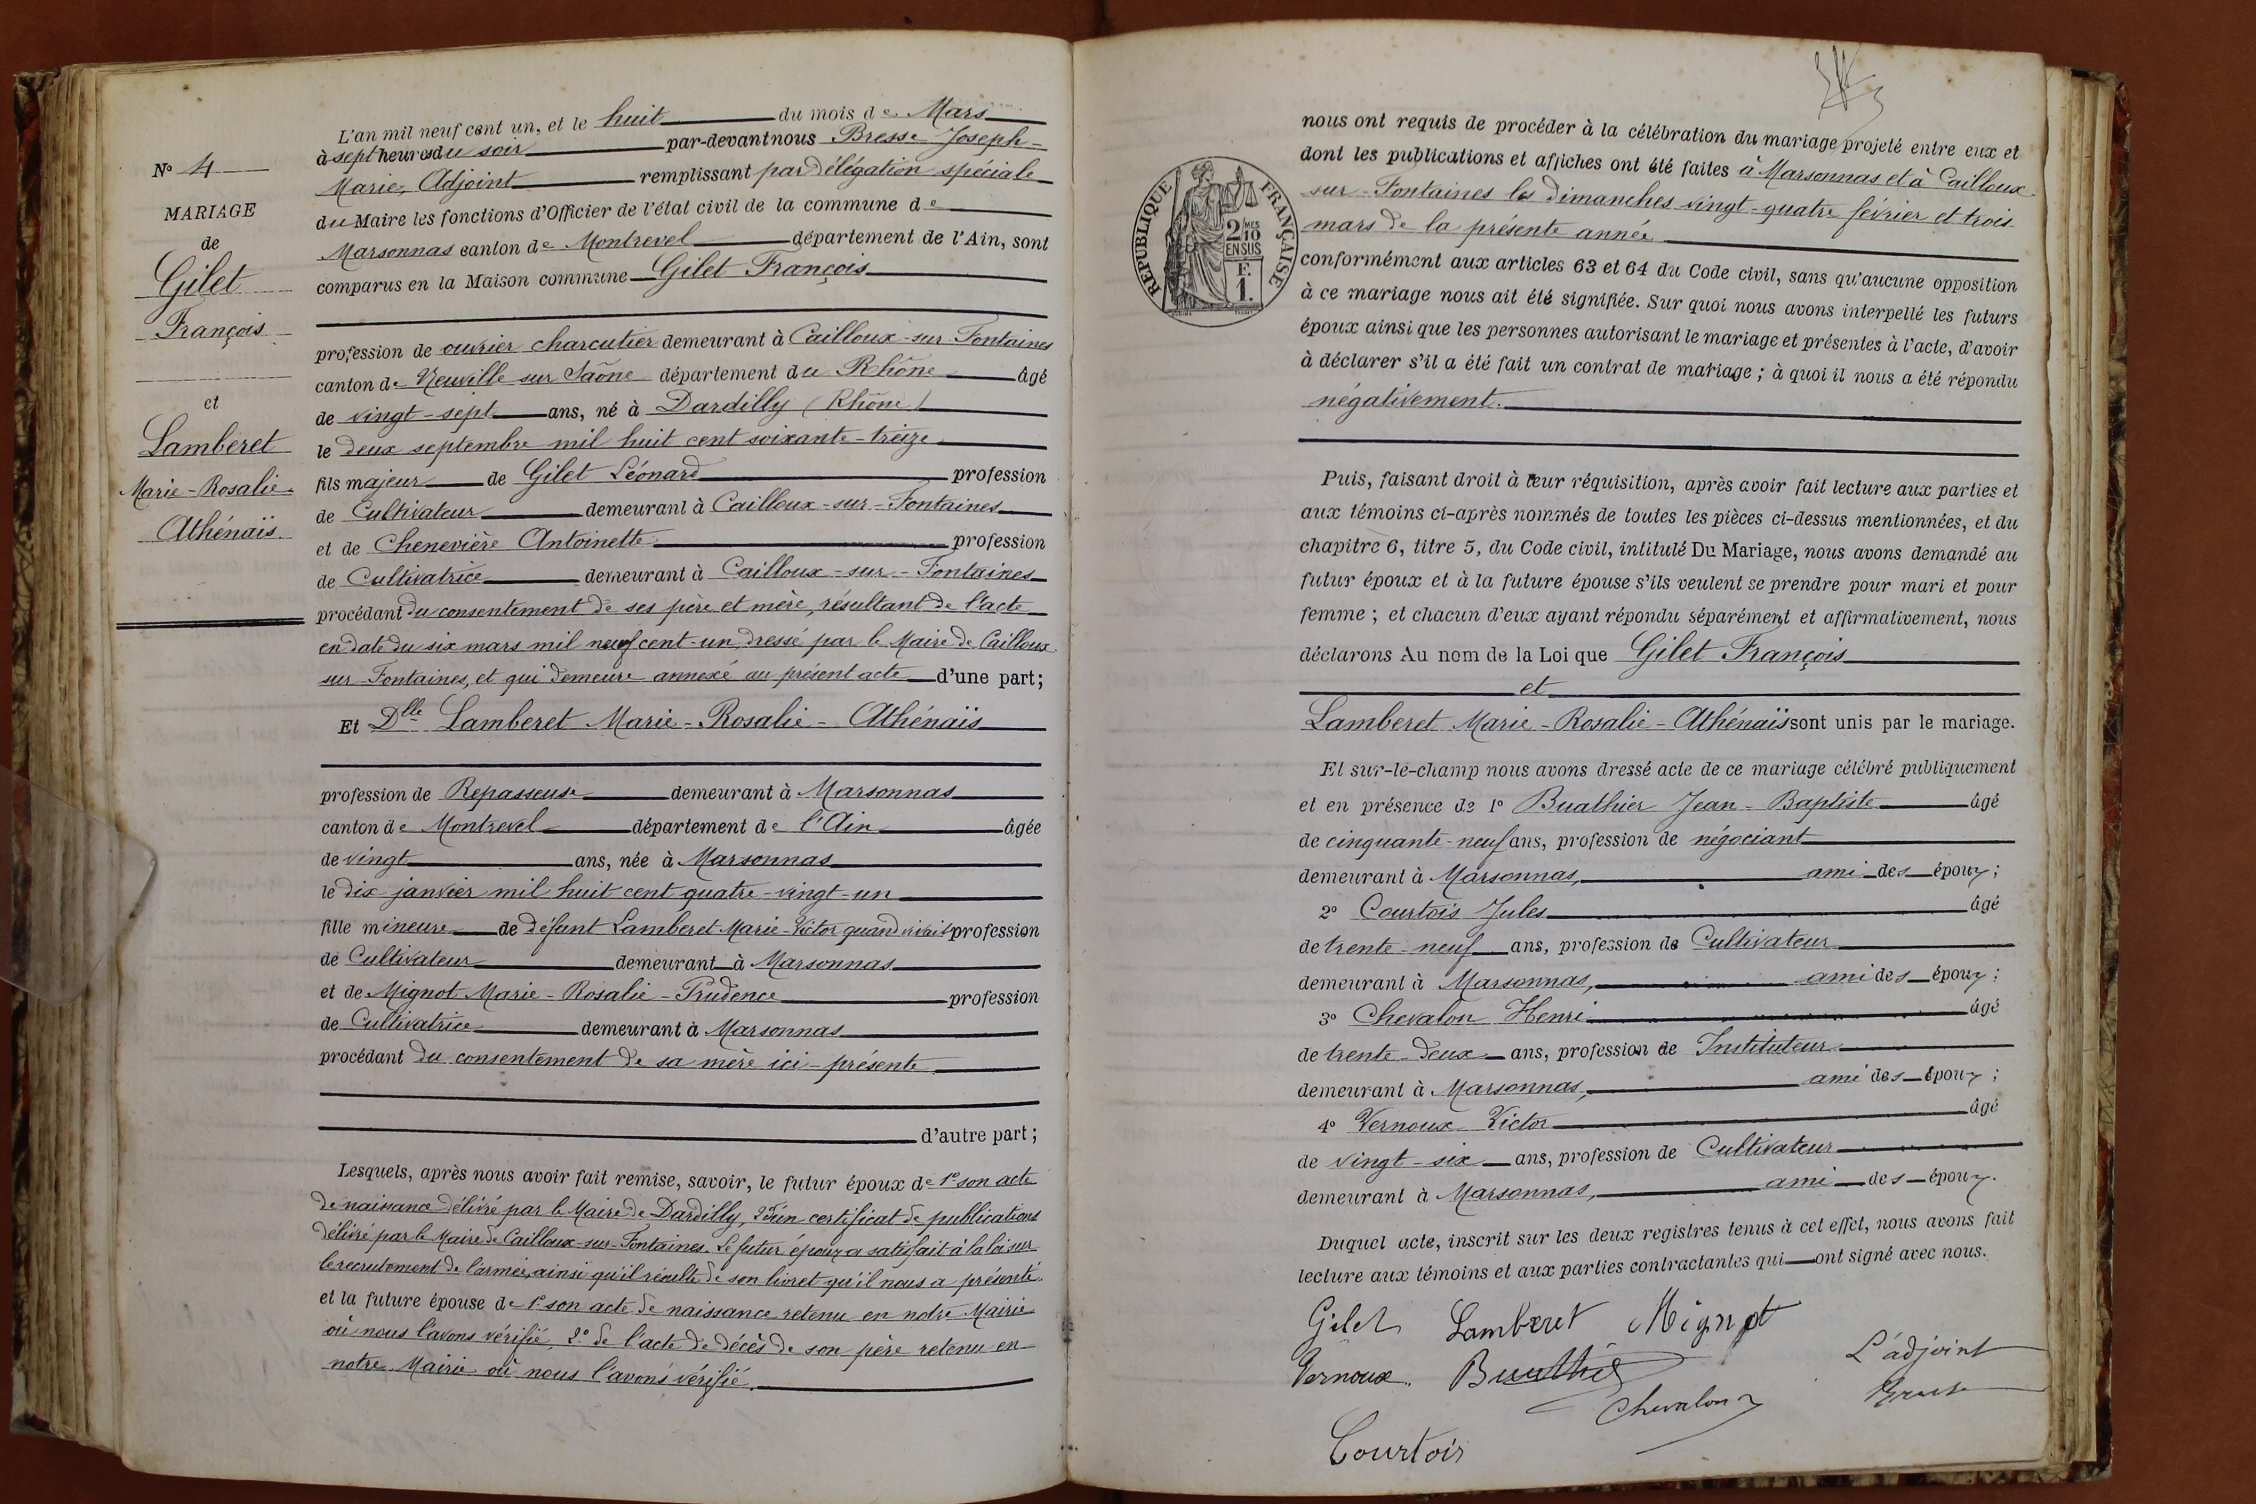 N° 4
MARIAGE
de
Gilet
François
et
Lamberet
Marie-Rosalie-
Athénaïs
L'an mil neuf cent un, et le huit du mois de Mars
à sept heures du soir par-devant nous Bresse Joseph-
Marie, Adjoint remplissant par délégation spéciale
du Maire les fonctions d'Officier de l'état civil de la commune de
Marsonnas canton de Montrevel département de l'Ain, sont
comparus en la Maison commune Gilet François
profession de ouvrier charcutier demeurant à Cailloux-sur-Fontaines
canton de Neuville sur Saône département du Rhône âgé
de vingt-sept ans, né à Dardilly (Rhône)
le deux septembre mil huit cent soixante-treize
fils majeur de Gilet Léonard profession
de Cultivateur demeurant à Cailloux-sur-Fontaines
et de Chenevière Antoinette profession
de Cultivatrice demeurant à Cailloux-sur-Fontaines
procédant du consentement de ses père et mère, résultant de l'acte
en date du six mars mil neuf cent-un, dressé par le Maire de Cailloux
sur-Fontaines, et qui demeure annexé au présent acte d'une part;
Et Dlle Lamberet Marie-Rosalie-Athénaïs
profession de Repasseuse demeurant à Marsonnas
canton de Montrevel département de l'Ain âgée
de vingt ans, née à Marsonnas
le dix janvier mil huit cent quatre-vingt-un
fille mineure de défunt Lamberet Marie-Victor quand vivait profession
de Cultivateur demeurant à Marsonnas
et de Mignot Marie-Rosalie-Prudence profession
de Cultivatrice demeurant à Marsonnas
procédant du consentement de sa mère ici-présente
d'autre part;
Lesquels, après nous avoir fait remise, savoir, le futur époux de 1° son acte
de naissance délivré par le Maire de Dardilly, 2° d'un certificat de publications
délivré par le Maire de Cailloux-sur-Fontaines. Le futur époux a satisfait à la loi sur
le recrutement de l'armée, ainsi qu'il résulte de son livret qu'il nous a présenté.
et la future épouse de 1° son acte de naissance retenu en notre Mairie
où nous l'avons vérifié, 2° de l'acte de décès de son père retenu en
notre Mairie où nous l'avons vérifié.
RÉPUBLIQUE FRANÇAISE
2 MES
10
EN SUS
F.
1.
nous ont requis de procéder à la célébration du mariage projeté entre eux et
dont les publications et affiches ont été faites à Marsonnas et à Cailloux-
sur-Fontaines les dimanches vingt-quatre février et trois
mars de la présente année
conformément aux articles 63 et 64 du Code civil, sans qu'aucune opposition
à ce mariage nous ait été signifiée. Sur quoi nous avons interpellé les futurs
époux ainsi que les personnes autorisant le mariage et présentes à l'acte, d'avoir
à déclarer s'il a été fait un contrat de mariage; à quoi il nous a été répondu
négativement.
Puis, faisant droit à leur réquisition, après avoir fait lecture aux parties et
aux témoins ci-après nommés de toutes les pièces ci-dessus mentionnées, et du
chapitre 6, titre 5, du Code civil, intitulé Du Mariage, nous avons demandé au
futur époux et à la future épouse s'ils veulent se prendre pour mari et pour
femme; et chacun d'eux ayant répondu séparément et affirmativement, nous
déclarons Au nom de la Loi que Gilet François
et
Lamberet Marie-Rosalie-Athénaïs sont unis par le mariage.
Et sur-le-champ nous avons dressé acte de ce mariage célébré publiquement
et en présence de 1° Buathier Jean-Baptiste âgé
de cinquante-neuf ans, profession de négociant
demeurant à Marsonnas, ami des époux;
2° Courtois Jules âgé
de trente-neuf ans, profession de Cultivateur
demeurant à Marsonnas, ami des époux;
3° Chevalon Henri âgé
de trente-deux ans, profession de Instituteur
demeurant à Marsonnas, ami des époux;
4° Vernoux Victor âgé
de vingt-six ans, profession de Cultivateur
demeurant à Marsonnas, ami des époux.
Duquel acte, inscrit sur les deux registres tenus à cet effet, nous avons fait
lecture aux témoins et aux parties contractantes qui ont signé avec nous.
Gilet Lamberet Mignot
Vernoux. Buathier L'adjoint
Chevalon Bresse
Courtois